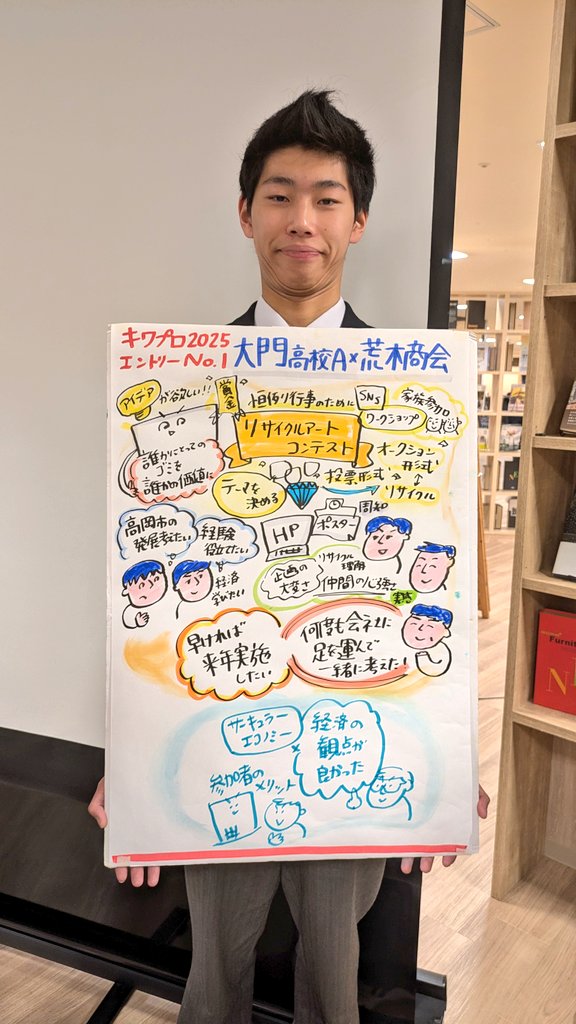 キワプロ2025
エントリーNo.1
大門高校A×荒木商会
アイデア
が欲しい!!
賞金
恒例行事のために
SNS
ワークショップ
家族参加
リサイクルアート
コンテスト
誰かにとっての
ゴミを
誰かの価値に
テーマを
決める
投票形式
オークション
形式
リサイクル
周知
HP
ポスター
高岡市の
発展考えたい
経験
役立てたい
経済
学びたい
企画の
大変さ
リサイクル
理解
仲間の心強さ
実感
早ければ
来年実施
したい
何度も会社に
足を運んで
一緒に考えたい
サーキュラー
エコノミー
×
経済の
観点が
良かった
参加者の
メリット
Furni